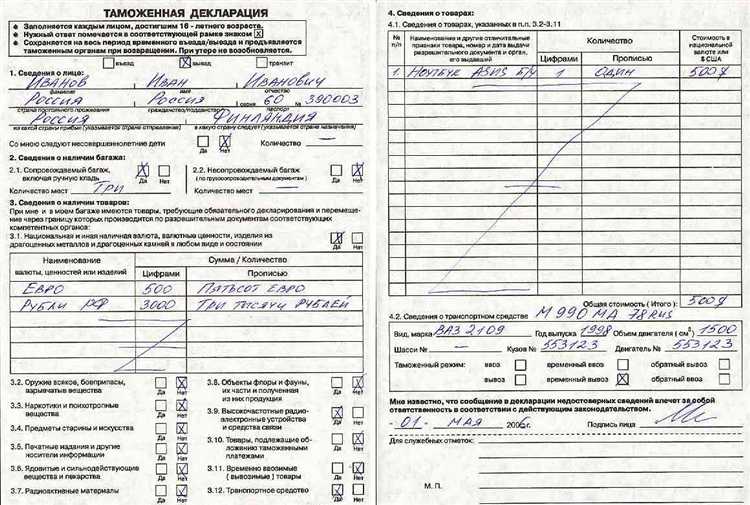 ТАМОЖЕННАЯ ДЕКЛАРАЦИЯ
Заполняется каждым лицом, достигшим 16 - летнего возраста.
Нужный ответ помечается в соответствующей рамке знаком X
Сохраняется на весь период временного въезда/выезда и предъявляется
таможенным органам при возвращении. При утере не возобновляется.
въезд X выезд транзит
1. Сведения о лице:
ИВАНОВ ИВАН ИВАНОВИЧ
фамилия имя отчество
РОССИЯ РОССИЯ серия 60 № 390003
страна постоянного проживания гражданство/подданство паспорт
РОССИЯ ФИНЛЯНДИЯ
из какой страны прибыл (указывается страна отправления) в какую страну следует (указывается страна назначения)
Со мною следуют несовершеннолетние дети Да X Нет Количество —
2. Сведения о наличии багажа:
2.1. Сопровождаемый багаж, включая ручную кладь X Да Нет
2.2. Несопровождаемый багаж (по грузосопроводительным документам) Да X Нет
Количество мест ТРИ Количество мест —
3. Сведения о наличии товаров:
При мне и в моем багаже имеются товары, требующие обязательного декларирования и перемеще-
ние через границу которых производится по разрешительным документам соответствующих
компетентных органов:
3.1. Национальная и иная наличная валюта, валютные ценности, изделия из
драгоценных металлов и драгоценных камней в любом виде и состоянии X Да Нет
Наименование валюты, ценностей или изделий Сумма / Количество
Цифрами Прописью
ЕВРО 500 ПЯТЬСОТ ЕВРО
РУБЛИ РФ 3000 ТРИ ТЫСЯЧИ РУБЛЕЙ
3.2. Оружие всякое, боеприпасы, взрывчатые вещества X
3.3. Наркотики и психотропные вещества X
3.4. Предметы старины и искусства X
3.5. Печатные издания и другие носители информации X
3.6. Ядовитые и сильнодействующие вещества и лекарства X
3.7. Радиоактивные материалы Да X Нет
3.8. Объекты флоры и фауны, их части и полученная из них продукция X
3.9. Высокочастотные радио-электронные устройства и средства связи X
3.10. Товары, подлежащие обложению таможенными платежами X
3.11. Временно ввозимые (вывозимые) товары X
3.12. Транспортное средство X Да Нет
4. Сведения о товарах:
4.1. Сведения о товарах, указанных в п.п. 3.2-3.11
№ п/п Наименование и другие отличительные признаки товара, номер и дата выдачи разрешительного документа и орган, его выдавший Количество Стоимость в национальной валюте или в США
Цифрами Прописью
1. НОУТБУК ASUS Б/У 1 ОДИН 500$
Общая стоимость ( Итого ): 500$
4.2. Сведения о транспортном средстве М 990 МА 78 RUS
Вид, марка ВАЗ 2109 Год выпуска 1998 Объем двигателя ( см³ ) 1500
Шасси № — Кузов № 553123 Двигатель № 553123
Таможенный режим: ввоз временный ввоз обратный вывоз
вывоз временный вывоз X обратный ввоз
Мне известно, что сообщение в декларации недостоверных сведений влечет за собой
ответственность в соответствии с действующим законодательством.
-01- МАЯ 2006г. Подпись лица
Для служебных отметок:
М. П.